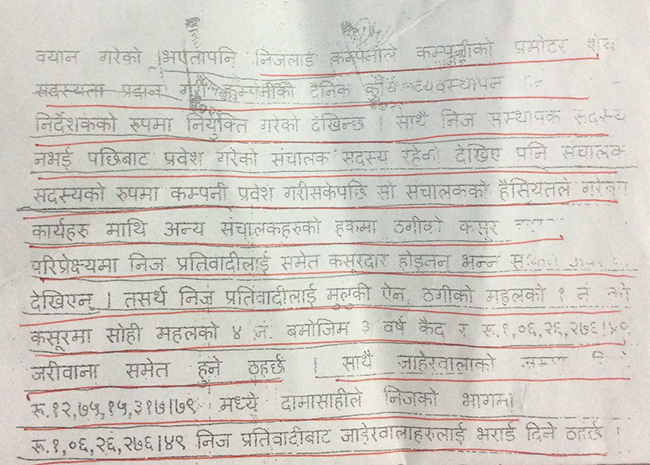 वयान गरेको भएतापनि निजलाई कम्पनीले कम्पनीको प्रमोटर शेयर
सदस्यता प्रदान गरी कम्पनीको दैनिक कार्य व्यवस्थापन
निर्देशकको रुपमा नियुक्ति गरेको देखिन्छ । साथै निज संस्थापक सदस्य
नभई पछिबाट प्रवेश गरेको संचालक सदस्य रहेको देखिए पनि संचालक
सदस्यको रुपमा कम्पनी प्रवेश गरीसकेपछि सो संचालकको हैसियतले गरेका
कार्यहरु माथि अन्य संचालकहरुको हकमा ठगीको कसूर
परिप्रेक्ष्यमा निज प्रतिवादीलाई समेत कसूरदार होइनन भन्न
देखिएन । तसर्थ निज प्रतिवादीलाई मुलुकी ऐन, ठगीको महलको १ नं को
कसूरमा सोही महलको ४ नं. बमोजिम ३ वर्ष कैद र रू.१,०६,२६,२७६।४९
जरीवाना समेत हुने ठहर्छ । साथै जाहेरवालाको
रू.१२,७५,१५,३१७।७९ मध्ये दामासाहीले निजको भागमा
रू.१,०६,२६,२७६।४९ निज प्रतिवादीबाट जाहेरवालाहरुलाई भराई दिने ठहर्छ ।